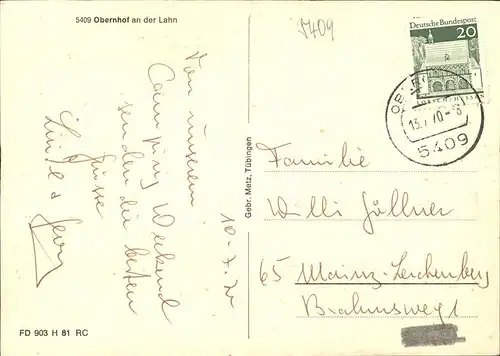 5409 Obernhof an der Lahn
5409
Deutsche Bundespost
20
LORSCH/HESSEN
13.7.70-8
5409
10.7.70
Von unserem
Camping Weekend
senden die besten
Grüsse
Gebr. Metz, Tübingen
Familie
Willi Göllner
65 Mainz-Lerchenberg
Brahmsweg 1
FD 903 H 81 RC